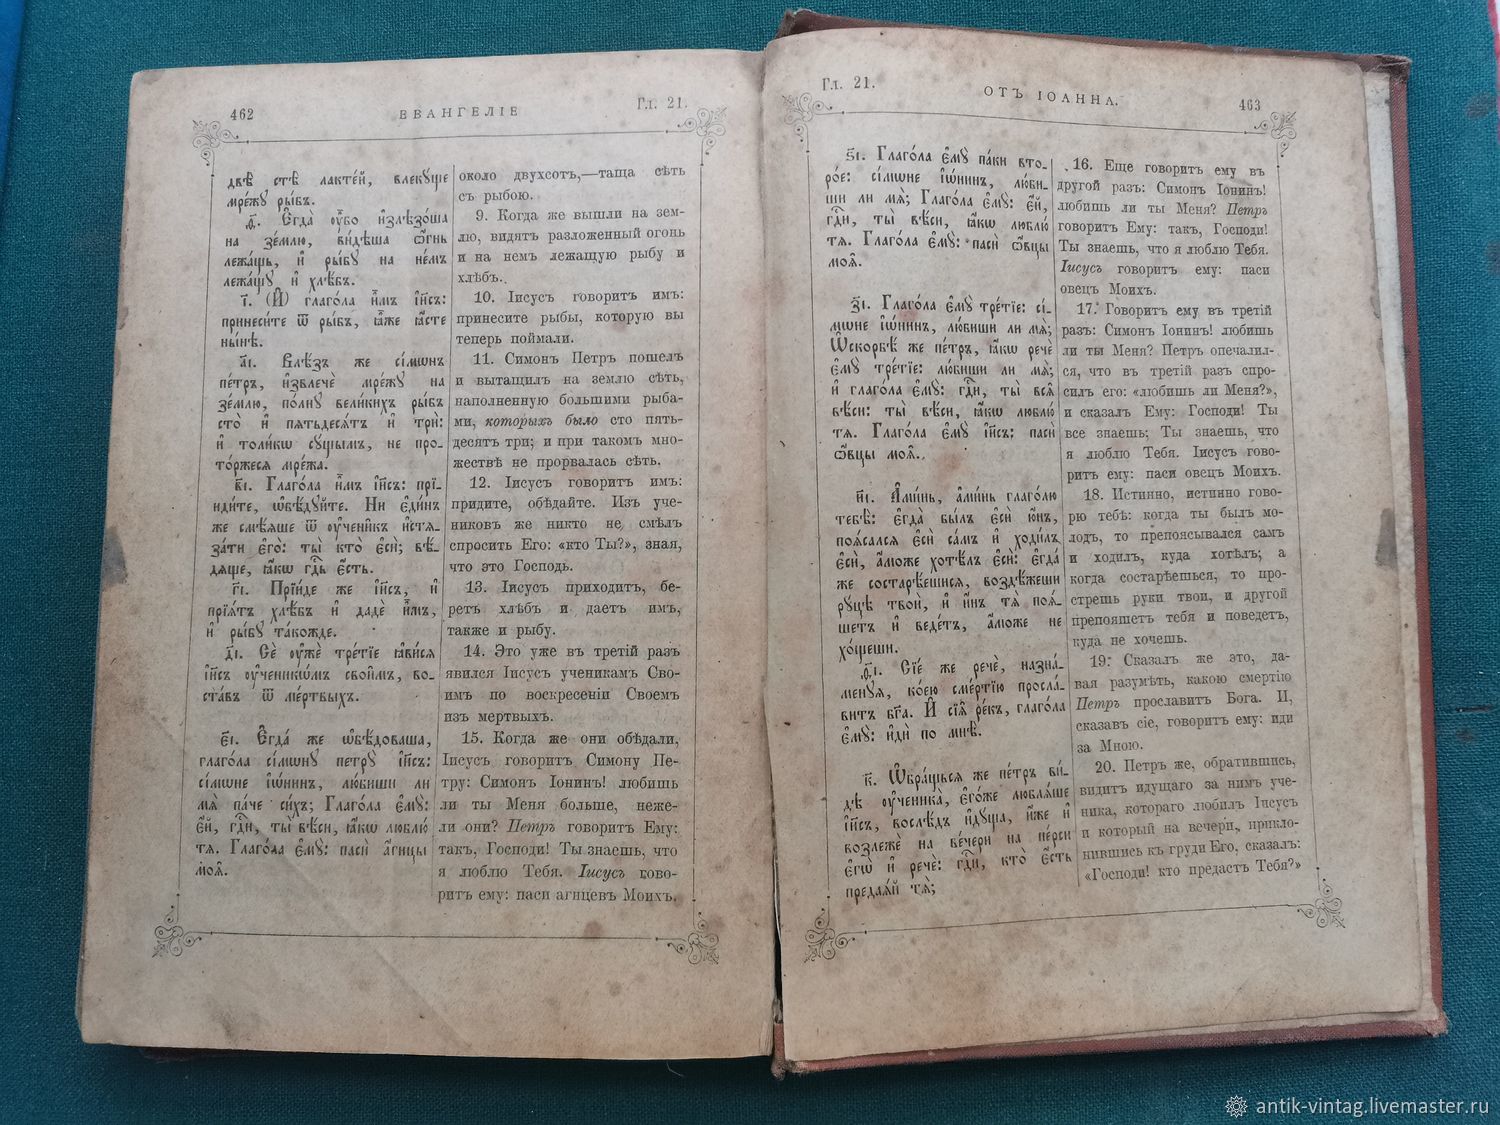 462
ЕВАНГЕЛІЕ
Гл. 21.
двѣ́ стѣ̀ лакте́й, влекꙋ́ще
мре́жꙋ ры́бъ.
ѳ҃. Є҆гда̀ ᲂу҆̀бо и҆злѣзо́ша
на зе́млю, ви́дѣша ѻ҆́гнь
лежа́щь, и҆ ры́бꙋ на не́мъ
лежа́щꙋ и҆ хлѣ́бъ.
і҃. (И҆) глаго́ла и҆̀мъ і҆и҃съ:
принеси́те ѿ ры́бъ, ꙗ҆̀же ꙗ҆́сте
ны́нѣ.
а҃і. Влѣ́зъ же сі́мѡнъ
пе́тръ, и҆звлечѐ мре́жꙋ на
зе́млю, по́лнꙋ вели́кихъ ры́бъ
сто̀ и҆ пѧтьдесѧ́тъ и҆ трѝ:
и҆ толи́кѡ сꙋ́щымъ, не про-
то́ржесѧ мре́жа.
в҃і. Глаго́ла и҆̀мъ і҆и҃съ: прї-
иди́те, ѡ҆бѣ́дꙋйте. Ни є҆ди́нъ
же смѣ́ѧше ѿ ᲂу҆чени̑къ и҆стѧ-
за́ти є҆го̀: ты̀ кто̀ є҆сѝ; вѣ́-
дѧще, ꙗ҆́кѡ гдⷭ҇ь є҆́сть.
г҃і. Прїи́де же і҆и҃съ, и҆
прїѧ́тъ хлѣ́бъ и҆ дадѐ и҆̀мъ,
и҆ ры́бꙋ та́кожде.
д҃і. Сѐ ᲂу҆жѐ тре́тїе ꙗ҆ви́сѧ
і҆и҃съ ᲂу҆ченикѡ́мъ свои̑мъ, во-
ста́въ ѿ ме́ртвыхъ.
є҃і. Є҆гда́ же ѡ҆бѣ́доваша,
глаго́ла сі́мѡнꙋ петрꙋ̀ і҆и҃съ:
сі́мѡне і҆ѡ́нинъ, лю́биши ли
мѧ̀ па́че си́хъ; Глаго́ла є҆мꙋ̀:
є҆́й, гдⷭ҇и, ты̀ вѣ́си, ꙗ҆́кѡ люблю́
тѧ. Глаго́ла є҆мꙋ̀: пасѝ а҆́гнцы
моѧ̑.
около двухсотъ,—таща сѣть
съ рыбою.
9. Когда же вышли на зем-
лю, видятъ разложенный огонь
и на немъ лежащую рыбу и
хлѣбъ.
10. Іисусъ говоритъ имъ:
принесите рыбы, которую вы
теперь поймали.
11. Симонъ Петръ пошелъ
и вытащилъ на землю сѣть,
наполненную большими рыба-
ми, которыхъ было сто пять-
десятъ три; и при такомъ мно-
жествѣ не прорвалась сѣть.
12. Іисусъ говоритъ имъ:
придите, обѣдайте. Изъ уче-
никовъ же никто не смѣлъ
спросить Его: «кто Ты?», зная,
что это Господь.
13. Іисусъ приходитъ, бе-
ретъ хлѣбъ и даетъ имъ,
также и рыбу.
14. Это уже въ третій разъ
явился Іисусъ ученикамъ Сво-
имъ по воскресеніи Своемъ
изъ мертвыхъ.
15. Когда же они обѣдали,
Іисусъ говоритъ Симону Пе-
тру: Симонъ Іонинъ! любишь
ли ты Меня больше, неже-
ли они? Петръ говоритъ Ему:
такъ, Господи! Ты знаешь, что
я люблю Тебя. Іисусъ гово-
ритъ ему: паси агнцевъ Моихъ.
Гл. 21.
ОТЪ ІОАННА.
463
ѕ҃і. Глаго́ла є҆мꙋ̀ па́ки вто-
ро́е: сі́мѡне і҆ѡ́нинъ, лю́би-
ши ли мѧ̀; Глаго́ла є҆мꙋ̀: є҆́й,
гдⷭ҇и, ты̀ вѣ́си, ꙗ҆́кѡ люблю́
тѧ. Глаго́ла є҆мꙋ̀: пасѝ ѻ҆́вцы
моѧ̑.
з҃і. Глаго́ла є҆мꙋ̀ тре́тїе: сі́-
мѡне і҆ѡ́нинъ, лю́биши ли мѧ̀;
Ѡ҆скорбѣ́ же пе́тръ, ꙗ҆́кѡ речѐ
є҆мꙋ̀ тре́тїе: лю́биши ли мѧ̀;
и҆ глаго́ла є҆мꙋ̀: гдⷭ҇и, ты̀ всѧ̑
вѣ́си: ты̀ вѣ́си, ꙗ҆́кѡ люблю́
тѧ. Глаго́ла є҆мꙋ̀ і҆и҃съ: пасѝ
ѻ҆́вцы моѧ̑.
и҃і. А҆ми́нь, а҆ми́нь глаго́лю
тебѣ̀: є҆гда̀ бы́лъ є҆сѝ ю҆́нъ,
поѧ́салсѧ є҆сѝ са́мъ и҆ ходи́лъ
є҆сѝ, а҆́може хотѣ́лъ є҆сѝ: є҆гда́
же состарѣ́ешисѧ, воздѣ́жеши
рꙋ́цѣ твоѝ, и҆ и҆́нъ тѧ̀ поѧ́-
шетъ и҆ веде́тъ, а҆́може не
хо́щеши.
ѳ҃і. Сїе́ же речѐ, назна́-
менꙋѧ, ко́ею сме́ртїю просла́-
витъ бг҃а. И҆ сїѧ̑ ре́къ, глаго́ла
є҆мꙋ̀: и҆дѝ по мнѣ̀.
к҃. Ѡ҆бра́щьсѧ же пе́тръ ви́-
дѣ ᲂу҆ченика̀, є҆го́же люблѧ́ше
і҆и҃съ, вослѣ́дъ и҆дꙋ́ща, и҆́же и҆
возлежѐ на ве́чери на пе́рси
є҆гѡ̀ и҆ речѐ: гдⷭ҇и, кто̀ є҆́сть
предаѧ́й тѧ̀;
16. Еще говоритъ ему въ
другой разъ: Симонъ Іонинъ!
любишь ли ты Меня? Петръ
говоритъ Ему: такъ, Господи!
Ты знаешь, что я люблю Тебя.
Іисусъ говоритъ ему: паси
овецъ Моихъ.
17. Говоритъ ему въ третій
разъ: Симонъ Іонинъ! любишь
ли ты Меня? Петръ опечалил-
ся, что въ третій разъ спро-
силъ его: «любишь ли Меня?»,
и сказалъ Ему: Господи! Ты
все знаешь; Ты знаешь, что
я люблю Тебя. Іисусъ гово-
ритъ ему: паси овецъ Моихъ.
18. Истинно, истинно гово-
рю тебѣ: когда ты былъ мо-
лодъ, то препоясывался самъ
и ходилъ, куда хотѣлъ; а
когда состарѣешься, то про-
стрешь руки твои, и другой
препояшетъ тебя и поведетъ,
куда не хочешь.
19. Сказалъ же это, да-
вая разумѣть, какою смертію
Петръ прославитъ Бога. И,
сказавъ сіе, говоритъ ему: иди
за Мною.
20. Петръ же, обратившись,
видитъ идущаго за нимъ уче-
ника, котораго любилъ Іисусъ
и который на вечери, прикло-
нившись къ груди Его, сказалъ:
«Господи! кто предастъ Тебя?»
antik-vintag.livemaster.ru